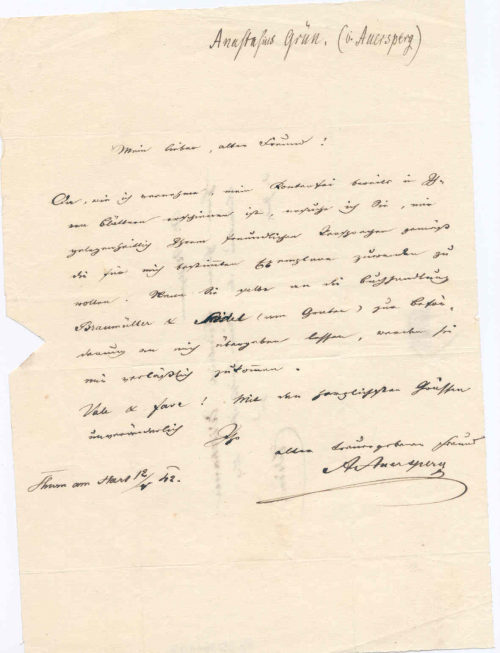 Anastasius Grün. (v. Auersperg)
Mein lieber, alter Freund!
Da, wie ich vernehme, mein Konterfei bereits in Ih-
ren Blättern erschienen ist, ersuche ich Sie, mir
gelegenheitlich Ihrem freundlichen Versprechen gemäß
die für mich bestimmten Exemplare zuwenden zu
wollen. Wenn Sie selbe an die Buchhandlung
Braumüller & Seidel (am Graben) zur Beför-
derung an mich übergeben lassen, werden sie
mir verläßlich zukommen.
Vale & fave! Mit den herzlichsten Grüssen
unveränderlich Ihr
alter treuergebener Freund
A. Auersperg
Thurn am Hart 12/ 42.